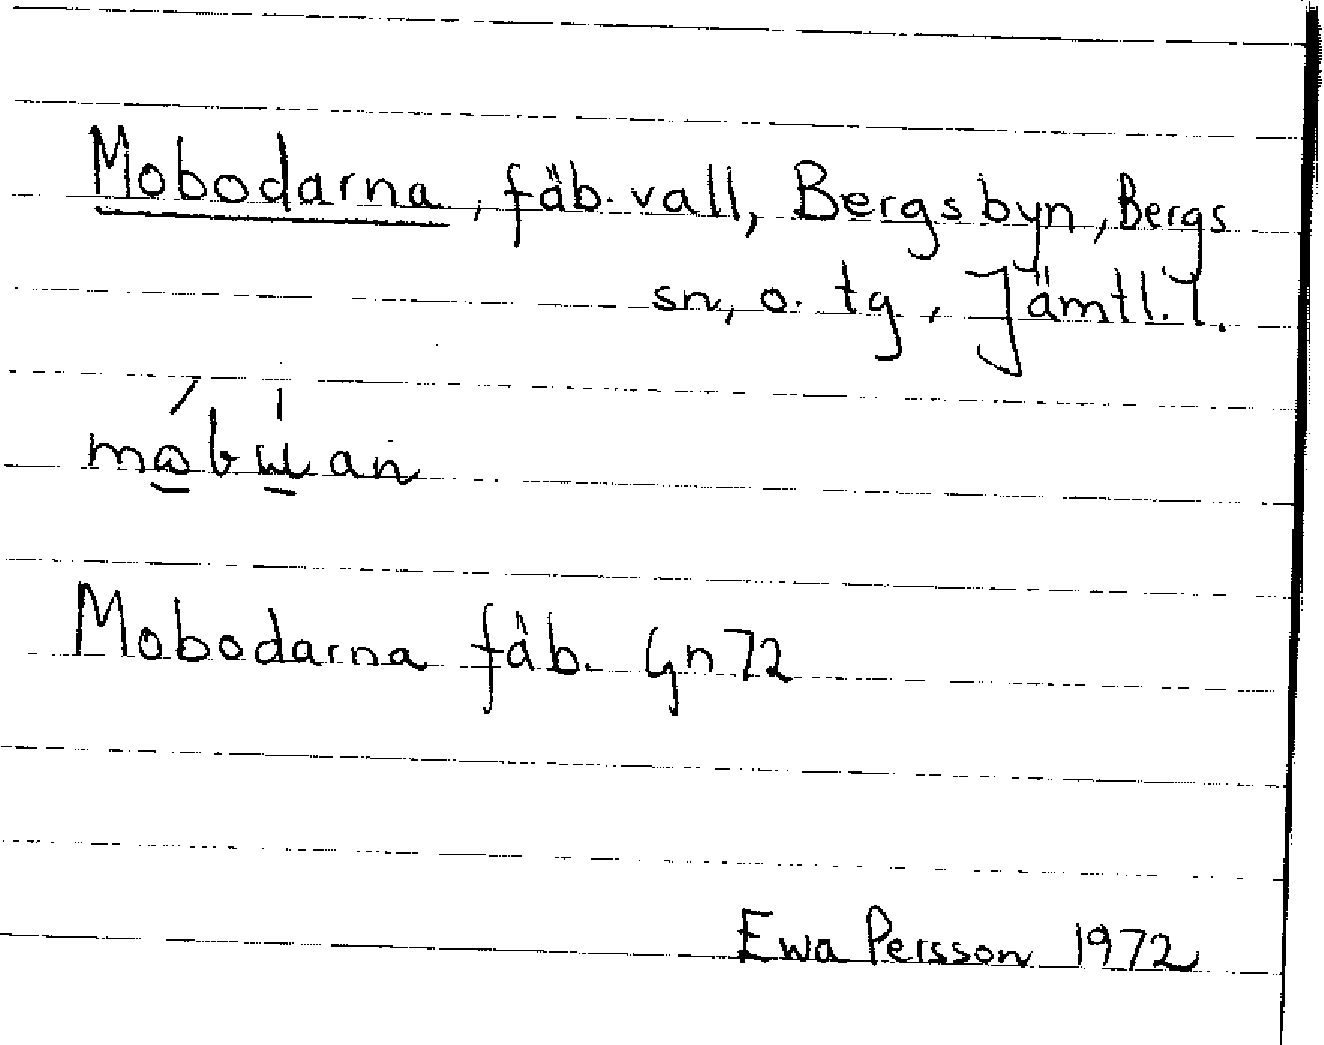 Mobodarna, fäb. vall, Bergsbyn, Bergs
sn, o. tg, Jämtl. l.
Mobodarna fäb. Gn 72
Ewa Persson 1972